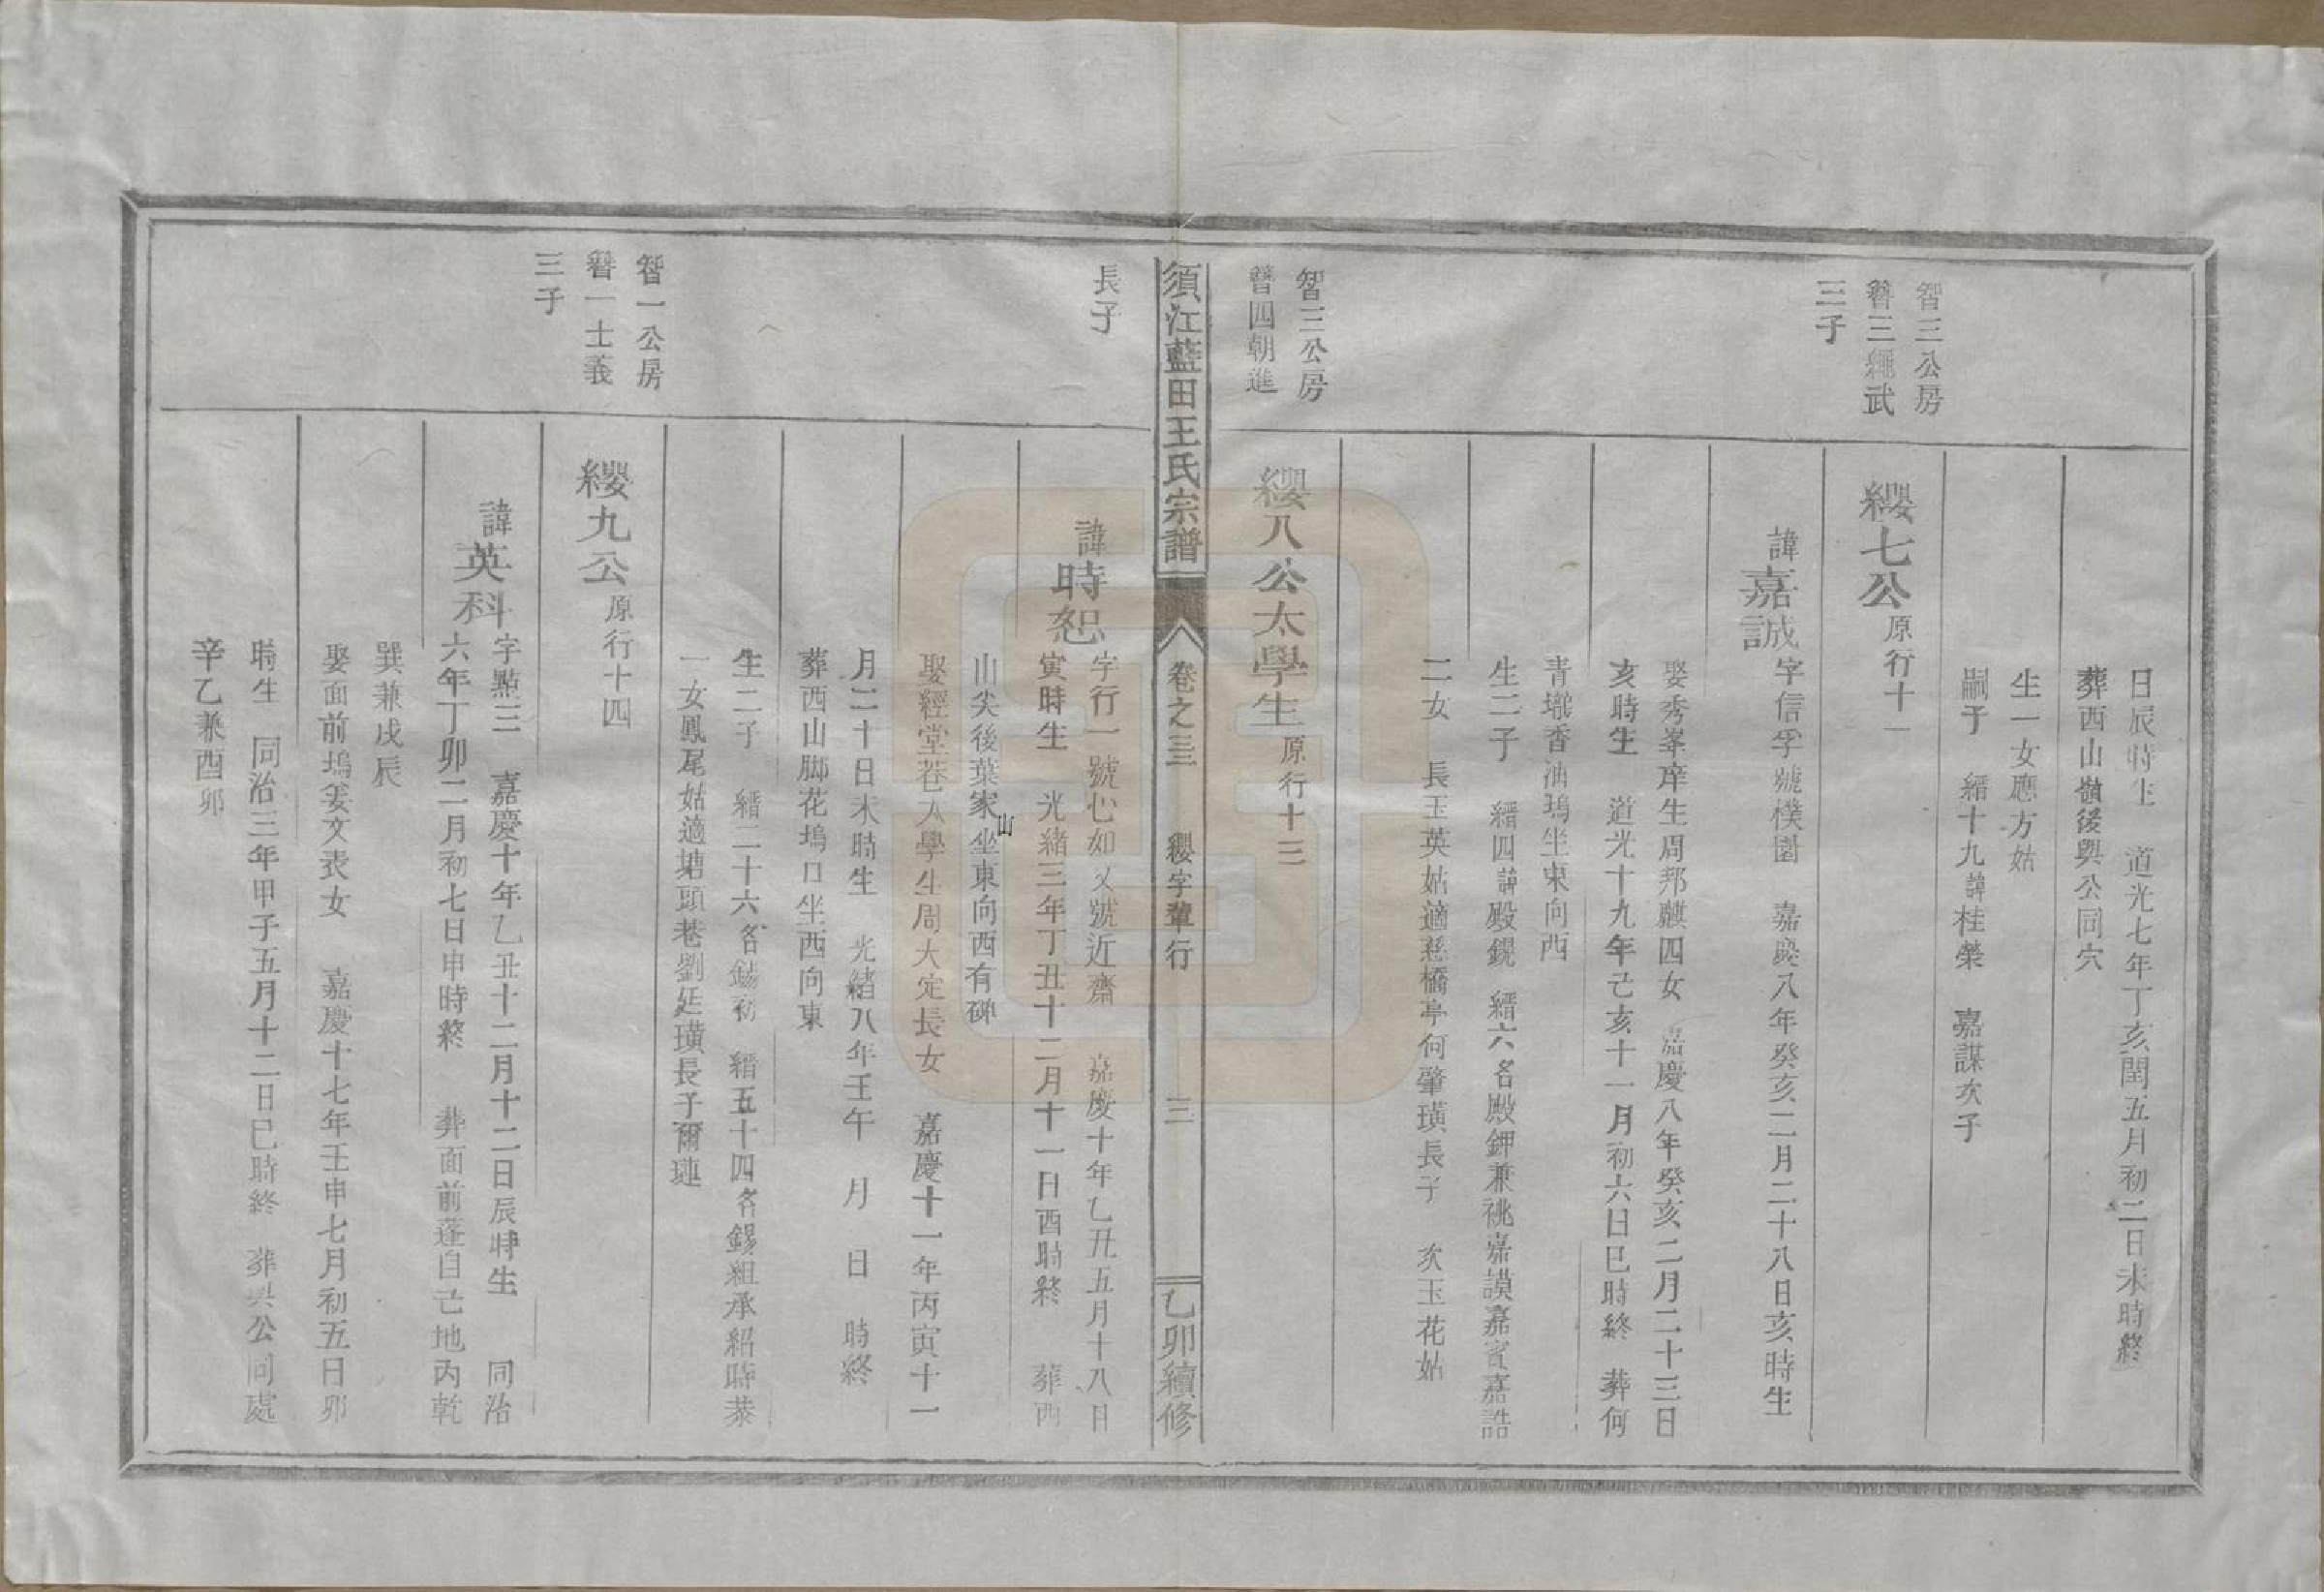 日辰時生　道光七年丁亥閏五月初二日未時終
葬西山嶺後與公同穴
生一女應方姑
嗣子　縉十九諱桂榮　嘉謀次子
智三公房
簪三繩武
三子
纓七公原行十一
諱嘉誠
字信孚號樸園　嘉慶八年癸亥二月二十八日亥時生
娶秀峯庠生周邦麒四女　嘉慶八年癸亥二月二十三日
亥時生　道光十九年己亥十一月初六日巳時終　葬何
青壠香油塢坐東向西
生二子　縉四諱殿鏡　縉六名殿鉀兼祧嘉謨嘉賓嘉誥
二女　長玉英姑適慈橋亭何肇璜長子　次玉花姑
智三公房
簪四朝進
纓八公太學生原行十三
須江藍田王氏宗譜
卷之三　纓字輩行　三
乙卯續修
長子
諱時恕
字行一號心如又號近齋　嘉慶十年乙丑五月十八日
寅時生　光緒三年丁丑十二月十一日酉時終　葬西
山尖後葉家山坐東向西有碑
娶經堂巷太學生周大定長女　嘉慶十一年丙寅十一
月二十日未時生　光緒八年壬午　月　日　時終
葬西山脚花塢口坐西向東
生二子　縉二十六名錫初　縉五十四名錫組承紹時恭
一女鳳尾姑適塘頭巷劉延璜長子爾璉
智一公房
簪一士義
三子
纓九公原行十四
諱英科
字點三　嘉慶十年乙丑十二月十二日辰時生　同治
六年丁卯二月初七日申時終　葬面前蓬自己地內乾
巽兼戌辰
娶面前塢姜文表女　嘉慶十七年壬申七月初五日卯
時生　同治三年甲子五月十二日巳時終　葬與公同處
辛乙兼酉卯